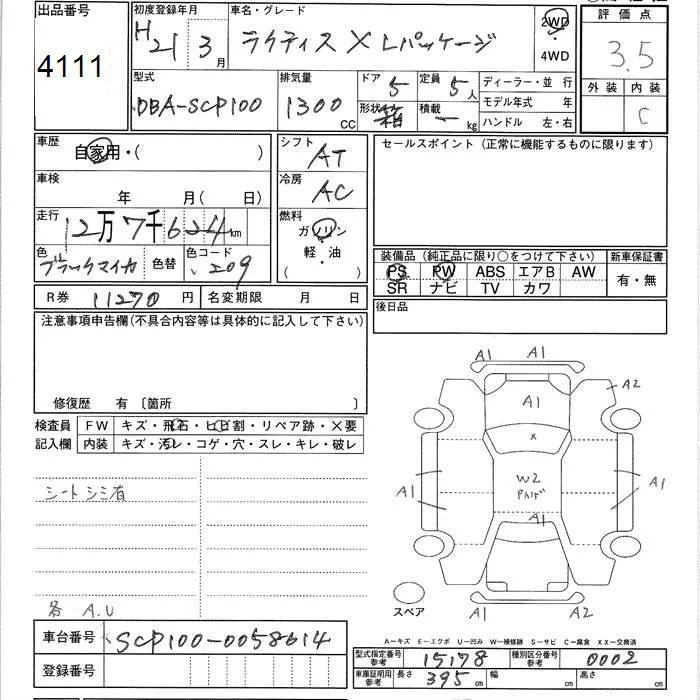 出品番号
4111
初度登録年月
H21 3月
車名・グレード
ラクティス X Lパッケージ
2WD
4WD
評価点
3.5
型式
DBA-SCP100
排気量
1300 CC
ドア 5
定員 5人
形状 箱
積載 ー kg
ディーラー・並行
モデル年式 年
ハンドル 左・右
外装 内装
C
車歴
自家用・( )
シフト AT
車検
年 月( 日)
冷房 AC
走行
12万7千624km
燃料
ガソリン
軽・油
( )
色
ブラックマイカ
色替
色コード
209
セールスポイント (正常に機能するものに限ります)
装備品 (純正品に限り○をつけて下さい)
PS PW ABS エアB AW
SR ナビ TV カワ
新車保証書
有・無
R券 11270 円
名変期限 月 日
後日品
注意事項申告欄(不具合内容等は具体的に記入して下さい)
修復歴 有 〔箇所 〕
検査員
記入欄
FW キズ・飛石・ヒビ割・リペア跡・×要
内装 キズ・汚レ・コゲ・穴・スレ・キレ・破レ
シートシミ有
各 A.U
A1 A1
A1 A2
x
W2
A1 A1
A1
A1 A2
スペア
A-キズ E-エクボ U-凹み W-補修跡 S-サビ C-腐食 XX-交換済
車台番号 SCP100-0058614
登録番号
型式指定番号
参考
15178
種別区分番号
参考
0002
車庫証明用
参考
長さ 395 cm
幅 cm
高さ cm